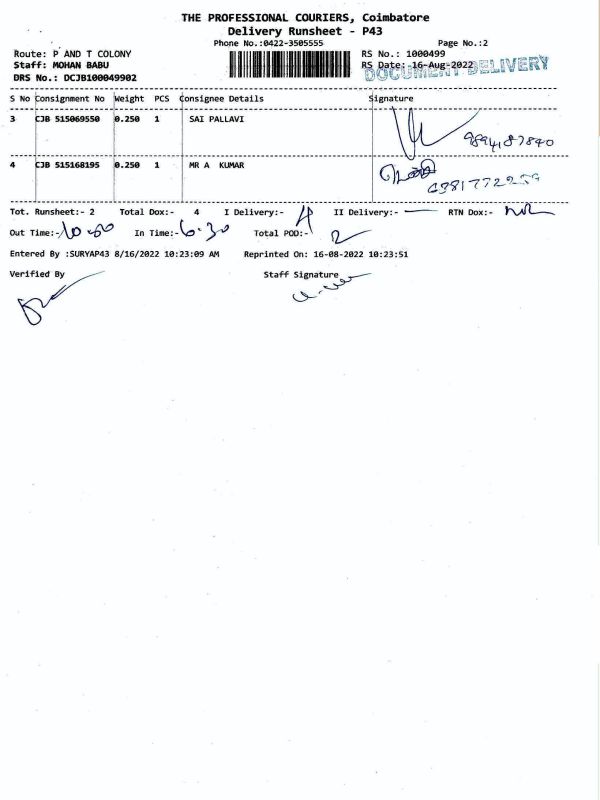 THE PROFESSIONAL COURIERS, Coimbatore
Delivery Runsheet - P43
Phone No.:0422-3505555 Page No.:2
Route: P AND T COLONY RS No.: 1000499
Staff: MOHAN BABU RS Date: 16-Aug-2022
DOCUMENT DELIVERY
DRS No.: DCJB100049902
S No Consignment No Weight PCS Consignee Details Signature
3 CJB 515069550 0.250 1 SAI PALLAVI
9894187840
4 CJB 515168195 0.250 1 MR A KUMAR
6381772259
Tot. Runsheet:- 2 Total Dox:- 4 I Delivery:- 4 II Delivery:- — RTN Dox:-
Out Time:- 10.00 In Time:- 6.30 Total POD:- 2
Entered By :SURYAP43 8/16/2022 10:23:09 AM Reprinted On: 16-08-2022 10:23:51
Verified By Staff Signature